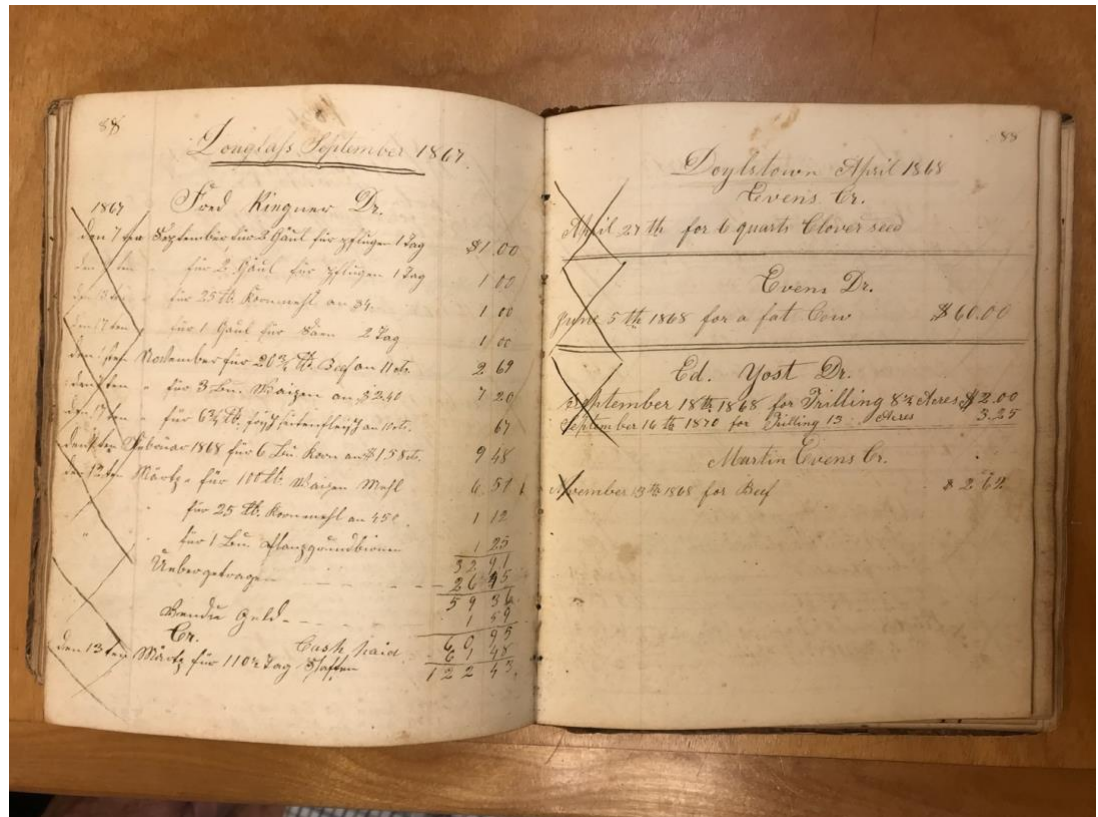 88
Douglass September 1867
Fred Ringner Dr.
1867
den 7ten September für 2 Gäul für pflügen 1 Tag $1.00
den ten " für 2 Gäul für pflügen 1 Tag 1 00
den ten " für 25 lb. Kornmehl an $4. 1 00
den 17ten " für 1 Gaul für Säen 2 Tag 1 00
den November für 20¾ lb. Beef an 11 cts. 2 69
den ten " für 3 Bu. Waizen an $2.40 7 20
den 17ten " für 6¾ lb. an 10 cts. 67
den ten Februar 1868 für 6 Bu. Korn an $1.58 cts. 9 48
den 12ten Märtz " für 100 lb. Waizen Mehl 6.51
für 25 lb. Kornmehl an 450. 1 12
" für 1 Bu. 1 25
32 91
Uebergetragen 26 45
59 36
Vendue Geld 1 59
60 95
Cr. Cash paid 61 48
den 13ten Märtz für 110½ Tag Schaffen 122 43.
88
Doylstown April 1868
Evens Cr.
April 27th for 6 quarts Clover seed
Evens Dr.
June 5th 1868 for a fat Cow $60.00
Ed. Yost Dr.
September 18th 1868 for Drilling 8½ Acres $2.00
September 16th 1870 for Drilling 13 Acres 3.25
Martin Evens Cr.
November 13th 1868 for Beef $2.62